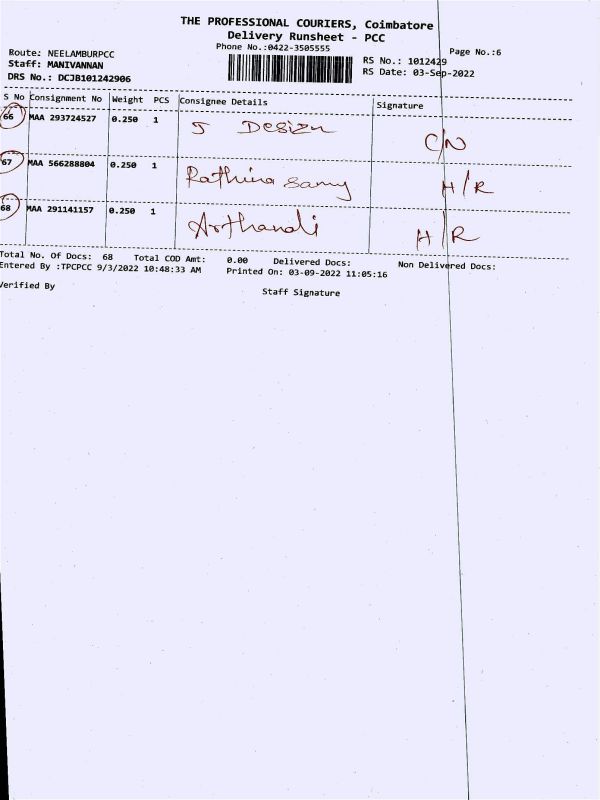 THE PROFESSIONAL COURIERS, Coimbatore
Delivery Runsheet - PCC
Phone No.:0422-3505555
Page No.:6
Route: NEELAMBURPCC
Staff: MANIVANNAN
DRS No.: DCJB101242906
RS No.: 1012429
RS Date: 03-Sep-2022
S No Consignment No Weight PCS Consignee Details Signature
66 MAA 293724527 0.250 1 J Design C/N
67 MAA 566288804 0.250 1 Rathina Samy H/R
68 MAA 291141157 0.250 1 H/R
Total No. Of Docs: 68 Total COD Amt: 0.00 Delivered Docs: Non Delivered Docs:
Entered By :TPCPCC 9/3/2022 10:48:33 AM Printed On: 03-09-2022 11:05:16
Verified By Staff Signature